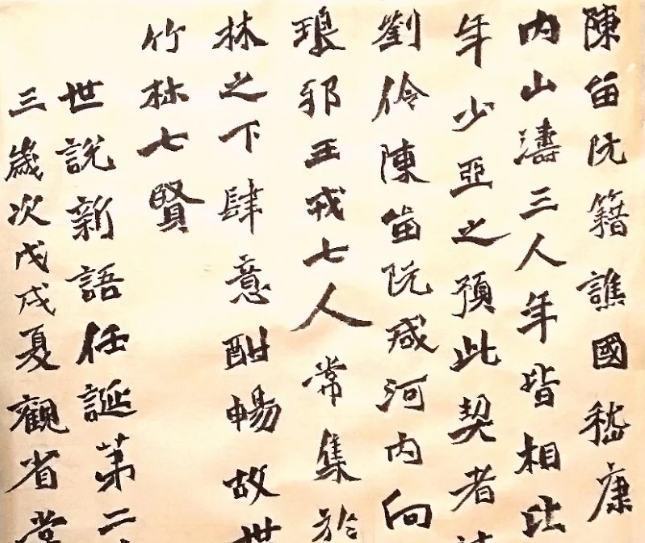 陳留阮籍譙國嵇康
內山濤三人年皆相比
年少亞之預此契者
劉伶陳留阮咸河內向
琅邪王戎七人常集於
林之下肆意酣暢故世
竹林七賢
世說新語任誕第二
三歲次戊戌夏觀省堂